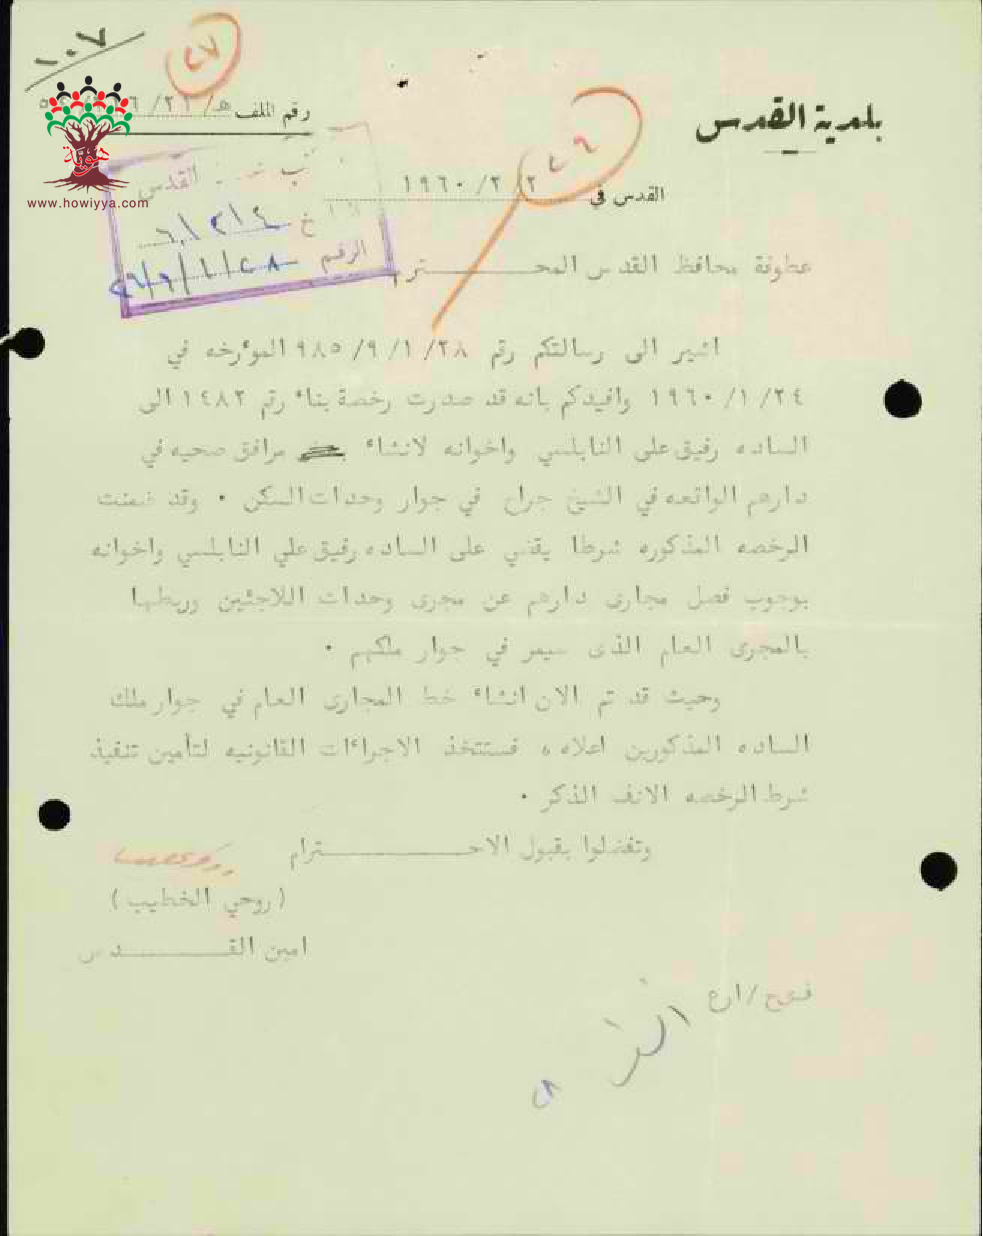 ١٠٧
٢٧
بلدية القدس
رقم الملف هـ/٢٦/
هوية
www.howiyya.com
القدس
٢٦
القدس في ٢/٢/١٩٦٠
الرقم ٢٨/١/٩/
عطوفة محافظ القدس المحـــــــترم
اشير الى رسالتكم رقم ٢٨/١/٩/٩٨٥ المؤرخه في
٢٤/١/١٩٦٠ وافيدكم بانه قد صدرت رخصة بناء رقم ١٤٨٢ الى
الساده رفيق علي النابلسي واخوانه لانشاء مرافق صحيه في
دارهم الواقعه في الشيخ جراح في جوار وحدات السكن ٠ وقد ضمنت
الرخصه المذكوره شرطا يقضي على الساده رفيق علي النابلسي واخوانه
بوجوب فصل مجارى دارهم عن مجرى وحدات اللاجئين وربطها
بالمجرى العام الذى سيمر في جوار ملكهم ٠
وحيث قد تم الان انشاء خط المجارى العام في جوار ملك
الساده المذكورين اعلاه ه فستتخذ الاجراءات القانونيه لتأمين تنفيذ
شرط الرخصه الانف الذكر ٠
وتفضلوا بقبول الاحـــــــترام
(روحي الخطيب)
امين القـــــــدس
/ارع